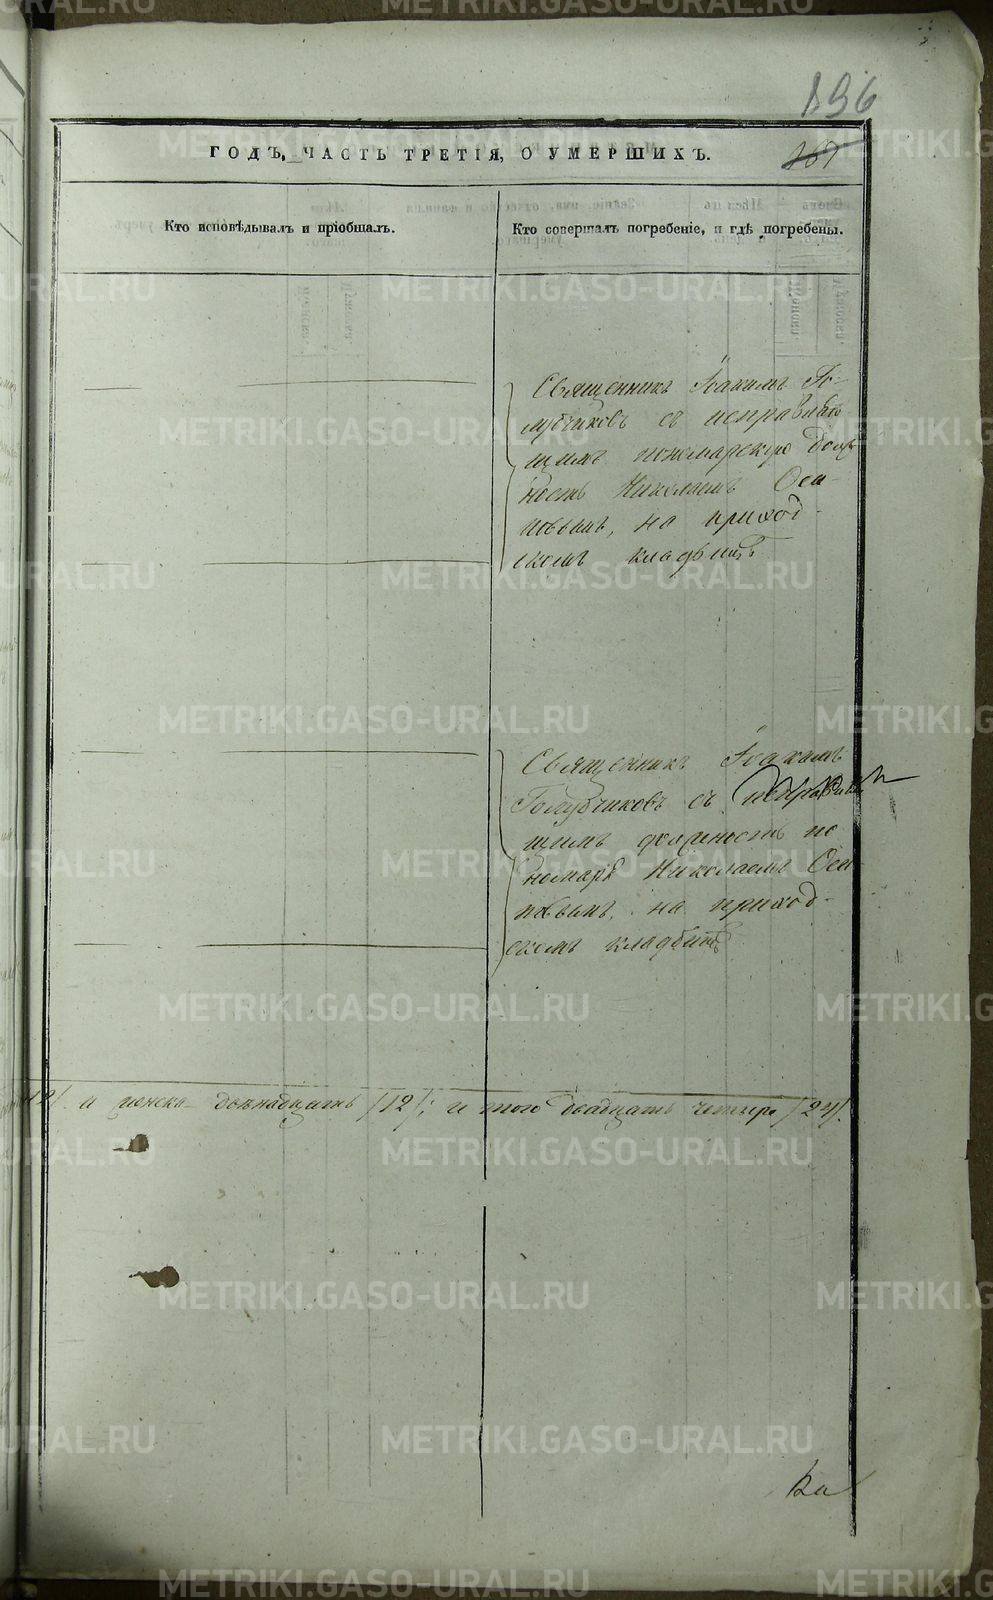 196
167
ГОДЪ, ЧАСТЬ ТРЕТІЯ, О УМЕРШИХЪ.
Кто исповѣдывалъ и пріобщалъ.
Кто совершалъ погребеніе, и гдѣ погребены.
Священникъ Іоакимъ Го-
лубчиковъ съ исправляю
щимъ пономарскую долж
ность Николаемъ Оси-
повымъ, на приход-
скомъ кладбищѣ
Священникъ Іоакимъ
Голубчиковъ съ исправляю
щимъ должность по
номаря Николаемъ Оси
повымъ, на приход-
скомъ кладбищѣ
/12/. и женска двѣнадцать /12/; и того двадцать четыре /24/.
METRIKI.GASO-URAL.RU